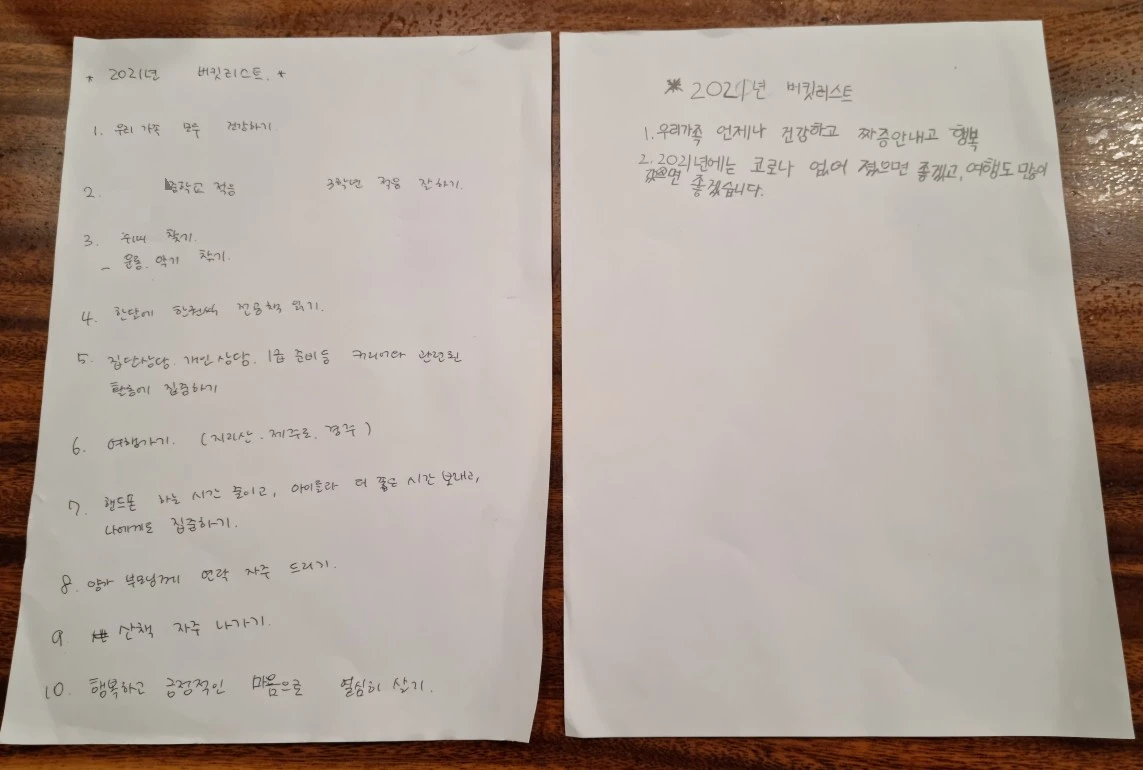 * 2021년 버킷리스트. *
1. 우리 가족 모두 건강하기
2. 중학교 적응 3학년 적응 잘하기.
3. 취미 찾기.
- 운동. 악기 찾기.
4. 한달에 한권씩 전공책 읽기.
5. 집단상담. 개인상담. 1급 준비등 커리어와 관련된
활동에 집중하기
6. 여행가기. (지리산. 제주도. 경주)
7. 핸드폰 하는 시간 줄이고, 아이들과 더 좋은 시간 보내고,
나에게도 집중하기.
8. 양가 부모님께 연락 자주 드리기.
9 산책 자주 나가기.
10. 행복하고 긍정적인 마음으로 열심히 살기.
* 2021년 버킷리스트
1. 우리가족 언제나 건강하고 짜증안내고 행복
2. 2021년에는 코로나 없어 졌으면 좋겠고, 여행도 많이
갔으면 좋겠습니다.